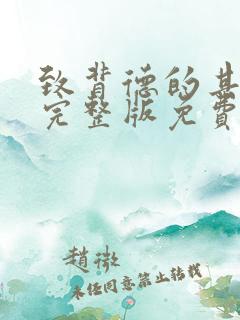 致背德的其
完整版免費
趙徽
未经同意禁止转载